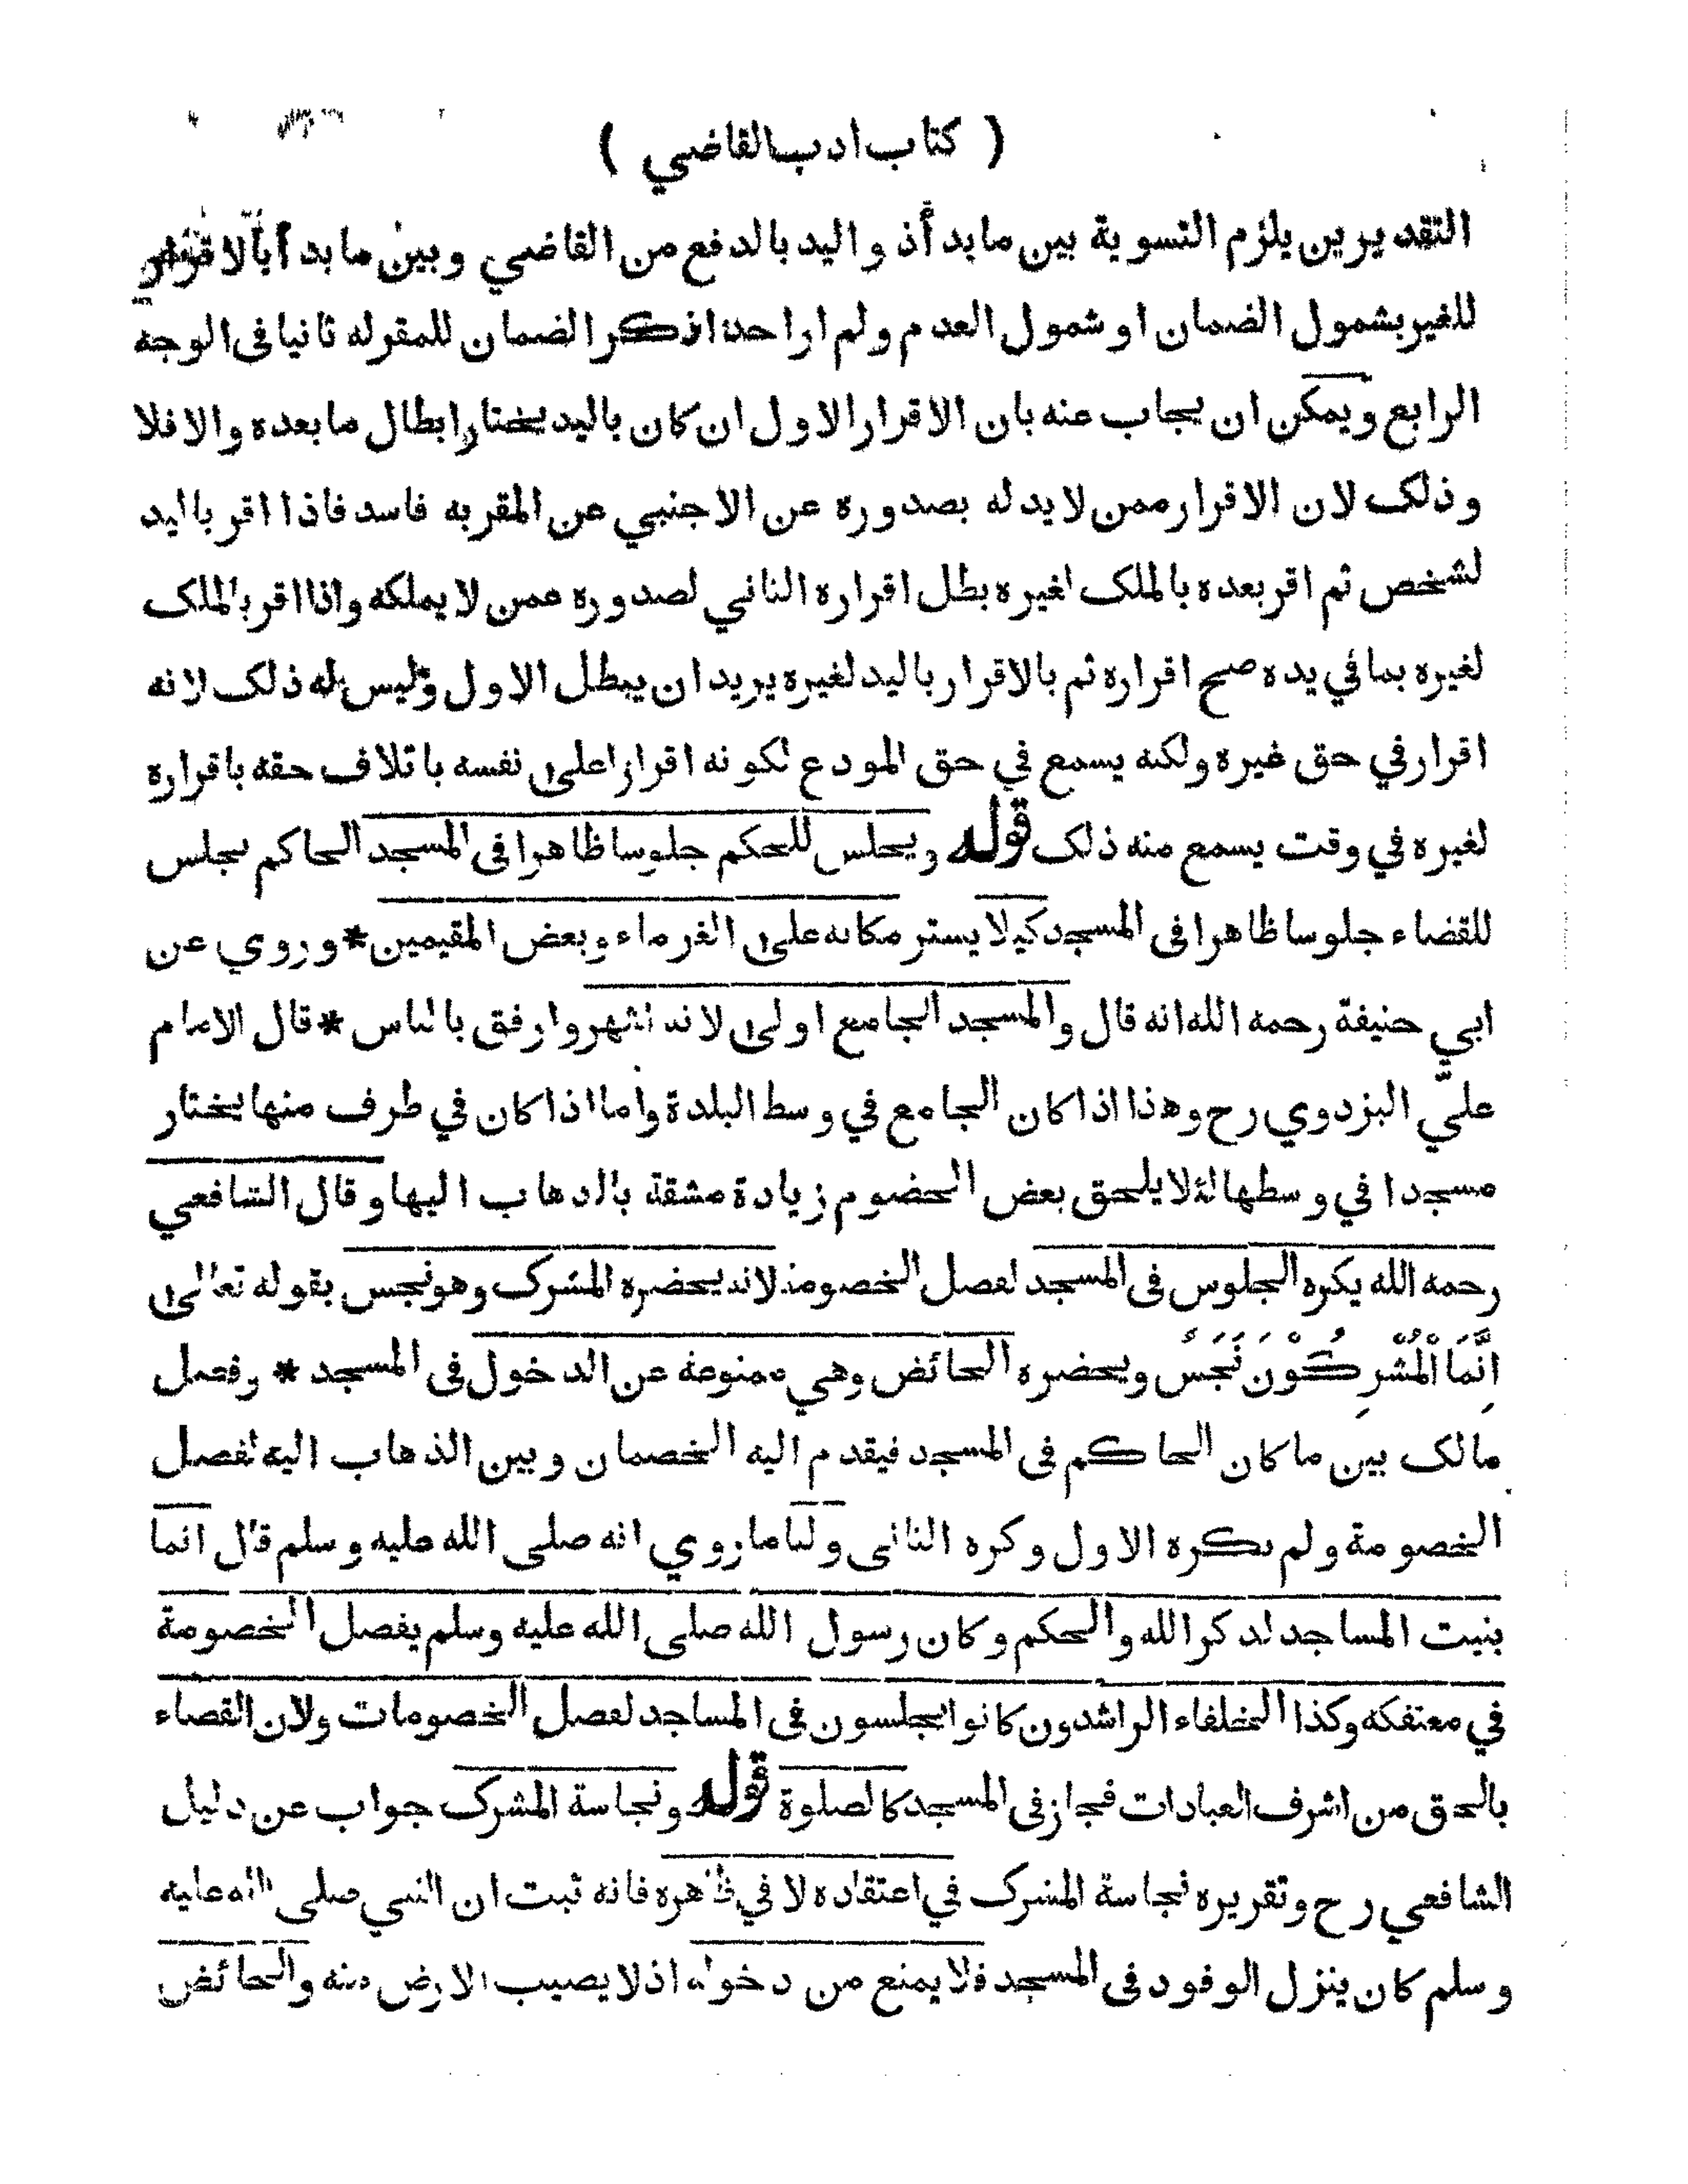 ( كتاب ادب القاضي )
التقديرين يلزم التسوية بين ما بدأ ذو اليد بالدفع من القاضي وبين ما بدأ بالاقرار
للغير بشمول الضمان او شمول العدم ولم ار احدا ذكر الضمان للمقر له ثانيا فى الوجه
الرابع ويمكن ان يجاب عنه بان الاقرار الاول ان كان باليد يختار ابطال ما بعده والا فلا
وذلك لان الاقرار ممن لا يد له بصدوره عن الاجنبي عن المقر به فاسد فاذا اقر باليد
لشخص ثم اقر بعده بالملك لغيره بطل اقراره الثاني لصدوره عمن لا يملكه واذا اقر بالملك
لغيره بما في يده صح اقراره ثم بالاقرار باليد لغيره يريد ان يبطل الاول وليس له ذلك لانه
اقرار في حق غيره ولكنه يسمع في حق المودع لكونه اقرارا على نفسه باتلاف حقه باقراره
لغيره في وقت يسمع منه ذلك قوله ويجلس للحكم جلوسا ظاهرا فى المسجد الحاكم يجلس
للقضاء جلوسا ظاهرا فى المسجد كيلا يستر مكانه على الغرماء وبعض المقيمين * وروي عن
ابي حنيفة رحمه الله انه قال والمسجد الجامع اولى لانه اشهر وارفق بالناس * قال الامام
عليّ البزدوي رح وهذا اذا كان الجامع في وسط البلدة واما اذا كان في طرف منها يختار
مسجدا في وسطها لئلا يلحق بعض الخصوم زيادة مشقة بالذهاب اليها وقال الشافعي
رحمه الله يكره الجلوس فى المسجد لفصل الخصومة لانه يحضره المشرك وهو نجس بقوله تعالى
اِنَّمَا الْمُشْرِكُوْنَ نَجَسٌ ويحضره الحائض وهي ممنوعة عن الدخول فى المسجد * وفصل
مالك بين ما كان الحاكم فى المسجد فيقدم اليه الخصمان وبين الذهاب اليه لفصل
الخصومة ولم يكره الاول وكره الثانى ولنا ما روي انه صلى الله عليه وسلم قال انما
بنيت المساجد لذكر الله والحكم وكان رسول الله صلى الله عليه وسلم يفصل الخصومة
في معتفكه وكذا الخلفاء الراشدون كانوا يجلسون فى المساجد لفصل الخصومات ولان القضاء
بالحق من اشرف العبادات فجاز فى المسجد كالصلوة قوله ونجاسة المشرك جواب عن دليل
الشافعي رح وتقريره نجاسة المشرك في اعتقاده لا في ظاهره فانه ثبت ان النبي صلى الله عليه
وسلم كان ينزل الوفود فى المسجد فلا يمنع من دخوله اذ لا يصيب الارض منه والحائض